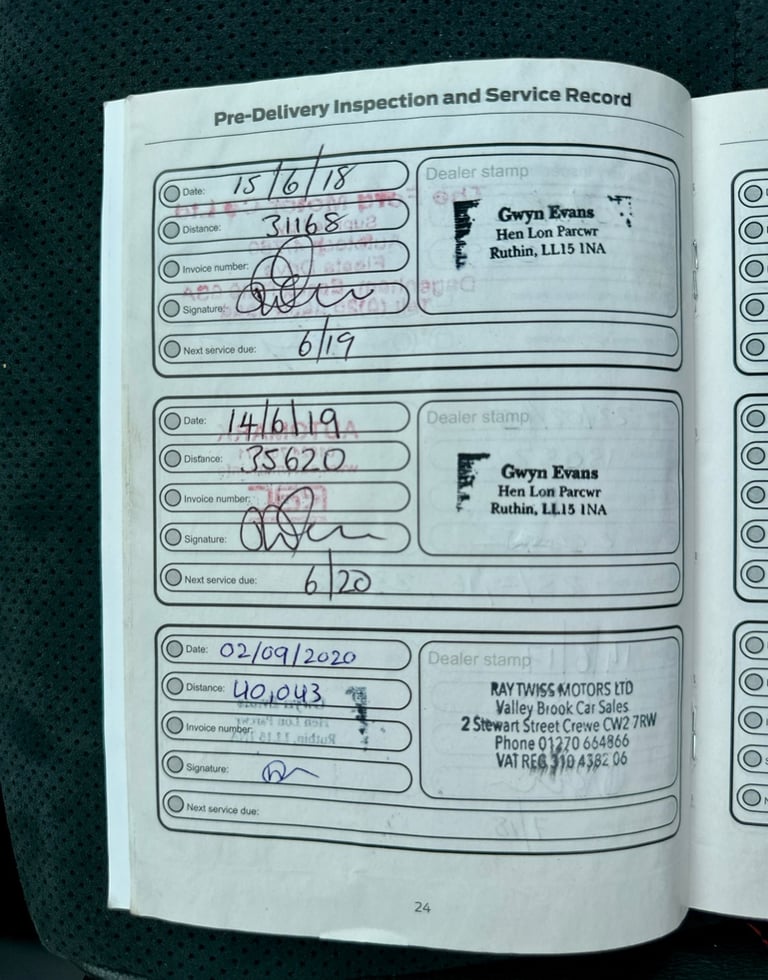 Pre-Delivery Inspection and Service Record
Date: 15/6/18
Distance: 31168
Invoice number:
Signature:
Next service due: 6/19
Dealer stamp
Gwyn Evans
Hen Lon Parcwr
Ruthin, LL15 1NA
Date: 14/6/19
Distance: 35620
Invoice number:
Signature:
Next service due: 6/20
Dealer stamp
Gwyn Evans
Hen Lon Parcwr
Ruthin, LL15 1NA
Date: 02/09/2020
Distance: 40,043
Invoice number:
Signature:
Next service due:
Dealer stamp
RAY TWISS MOTORS LTD
Valley Brook Car Sales
2 Stewart Street Crewe CW2 7RW
Phone 01270 664866
VAT REG 310 4382 06
24